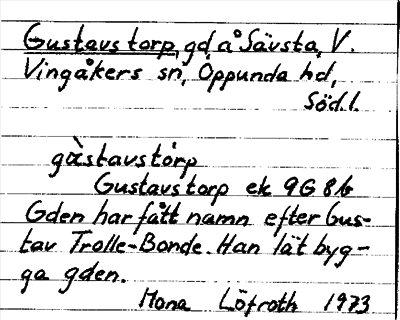 Gustavstorp, gd å Sävsta, V.
Vingåkers sn, Oppunda hd,
Söd.l.
Gustavstorp ek 9G 8b
Gden har fått namn efter Gus-
tav Trolle-Bonde. Han lät byg-
ga gden.
Mona Löfroth 1973